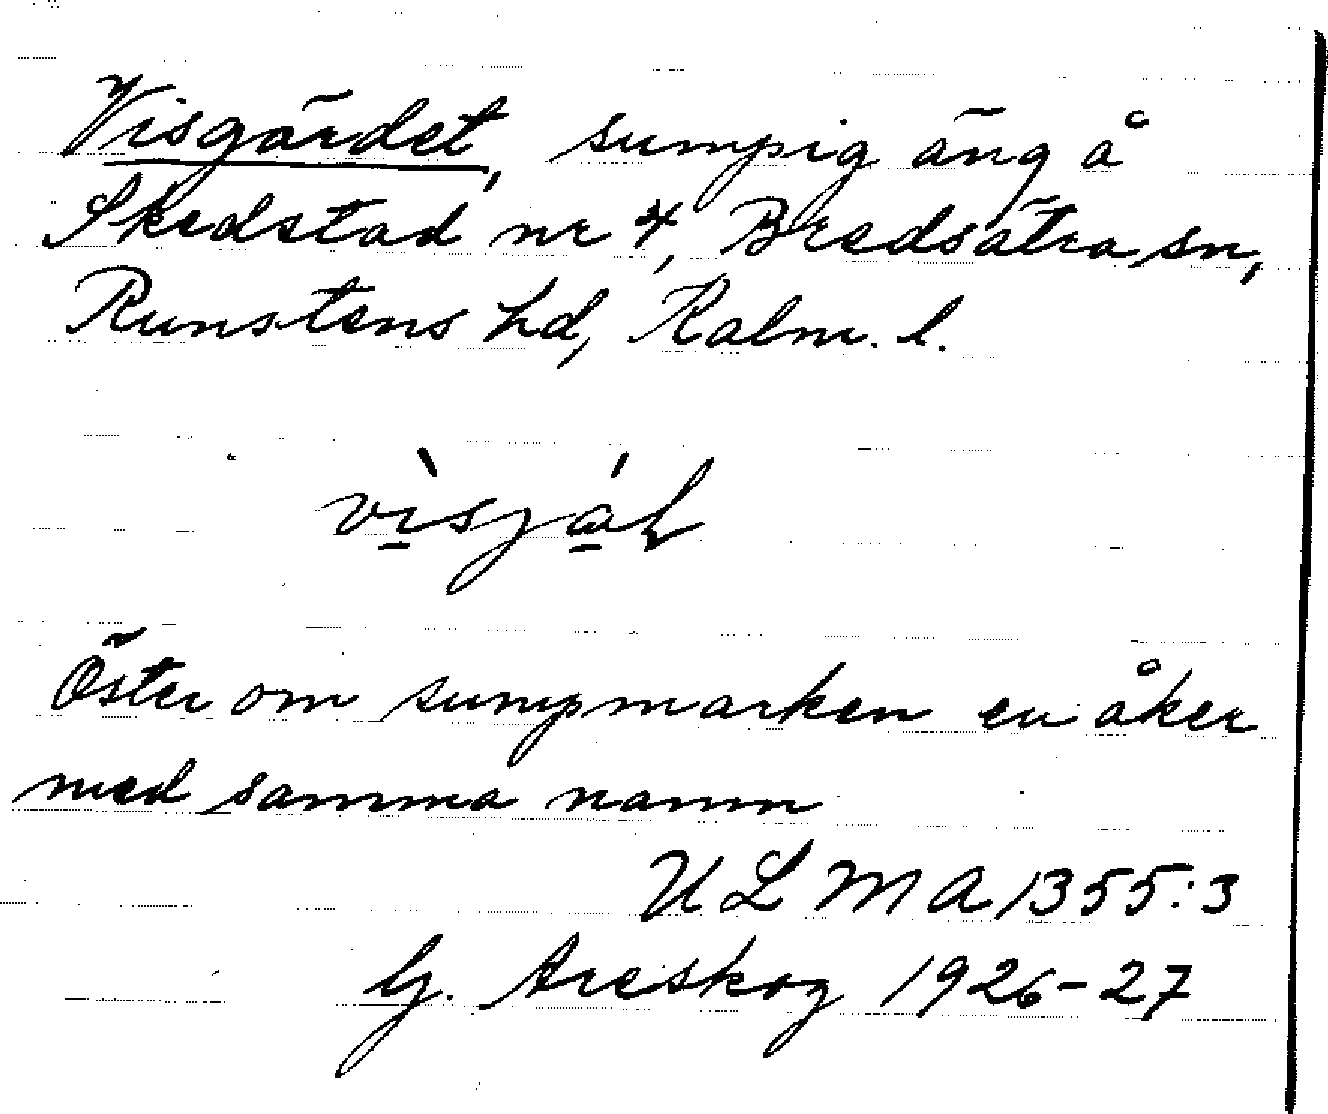 Visgärdet, sumpig äng å
Skedstad nr 4, Bredsätra sn,
Runstens hd, Kalm. l.
Öster om sumpmarken en åker
med samma namn
ULMA 1355:3
G. Areskog 1926-27